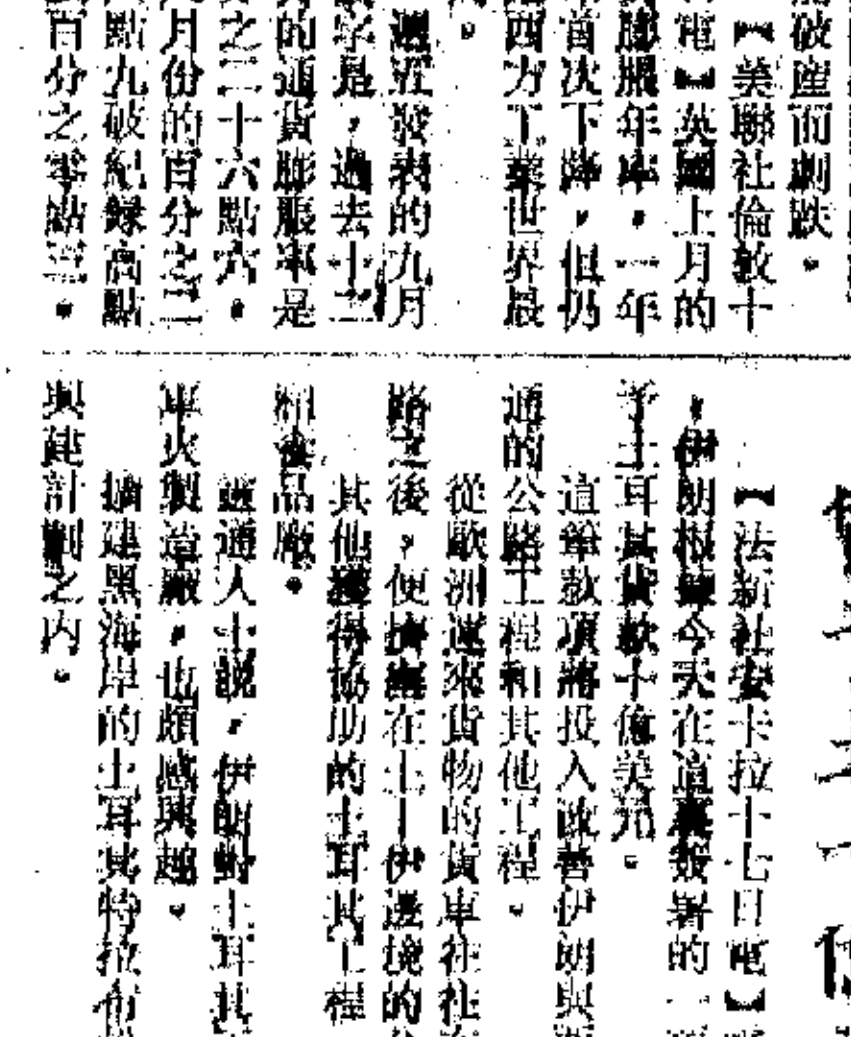 破產而劇跌。
電】【美聯社倫敦十
電】英國上月的
膨脹年率,一年
首次下降,但仍
西方工業世界最
週五發表的九月
字是,過去十二
的通貨膨脹率是
之二十六點六。
月份的百分之二
點九破紀錄高點
百分之零點三。
【法新社安卡拉十七日電】
,伊朗根據今天在這裏簽署的一
予土耳其貸款十億美元。
這筆款項將投入改善伊朗與
通的公路工程和其他工程。
從歐洲運來貨物的貨車往往
路之後,便擠塞在土—伊邊境的
其他獲得協助的土耳其工程
和食品廠。
消息靈通人士說,伊朗對土耳其
車火製造廠,也頗感興趣。
擴建黑海岸的土耳其特拉布
興建計劃之內。